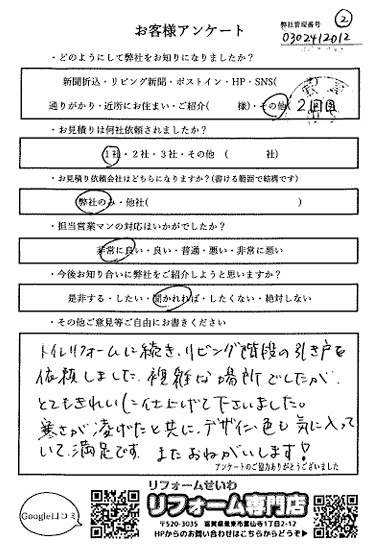 お客様アンケート
弊社管理番号 ②
0302412012
・どのようにして弊社をお知りになりましたか？
新聞折込・リビング新聞・ポストイン・HP・SNS(
通りがかり・近所にお住まい・ご紹介( 様)・その他( 2回目
・お見積りは何社依頼されましたか？
1社・2社・3社・その他 ( 社)
・お見積り依頼会社はどちらになりますか？(書ける範囲で結構です)
弊社のみ・他社( )
・担当営業マンの対応はいかがでしたか？
非常に良い・良い・普通・悪い・非常に悪い
・今後お知り合いに弊社をご紹介しようと思いますか？
是非する・したい・聞かれれば・したくない・絶対しない
・その他ご意見等ご自由にお書きください
トイレリフォームに続き、リビング階段の引き戸を
依頼しました。複雑な場所でしたが、
とてもきれいに仕上げて下さいました。
寒さが凌げたと共に、デザイン・色も気に入って
いて、満足です。またおねがいします！
アンケートのご協力ありがとうございました
Google口コミ
リフォームせいわ
リフォーム専門店
〒520-3035 滋賀県栗東市霊仙寺1丁目2-12
HPからのお問い合わせはこちらからどうぞ▶